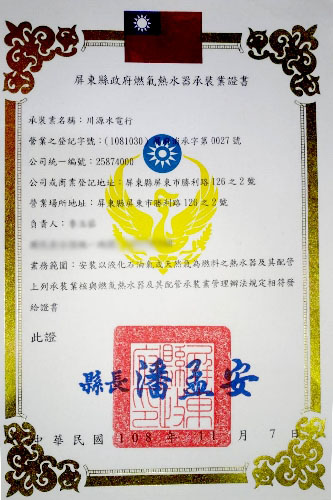 屏東縣政府燃氣熱水器承裝業證書
承裝業名稱：川源水電行
營業之登記字號：(1081030) 承字第0027號
公司統一編號：25874006
公司或商業登記地址：屏東縣屏東市勝利路126之2號
營業場所地址：屏東縣屏東市勝利路126之2號
負責人：
業務範圍：安裝以液化石油氣或天然氣為燃料之熱水器及其配管
上列承裝業核與燃氣熱水器及其配管承裝業管理辦法規定相符發
給證書
此證
縣長 潘孟安
中華民國 108 年 11 月 7 日